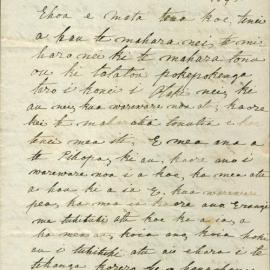 Ehoa e mata tena koe, tenei
a hau te mahara nei, te mi
haro nei ki te mahara tona
ou ki tatatou pokepokenga
tiro i konei i nei, ki
au nei, kua wareware noa ti, kaore
kei te tonutia e
tenei mea ti. E mea ana a
te Pihopa, ki au, kaore ano i
wareware noa i a koe, ka mea atu
a hau ki a ia E, kua wareware
pea, ka mea ia kaore ano Erangi
ma tuhituhi atu koe ki a ia, a
ka mea au, koia ano, koia hoki
au i tuhituhi atu ai ehara i te
tikanga korero